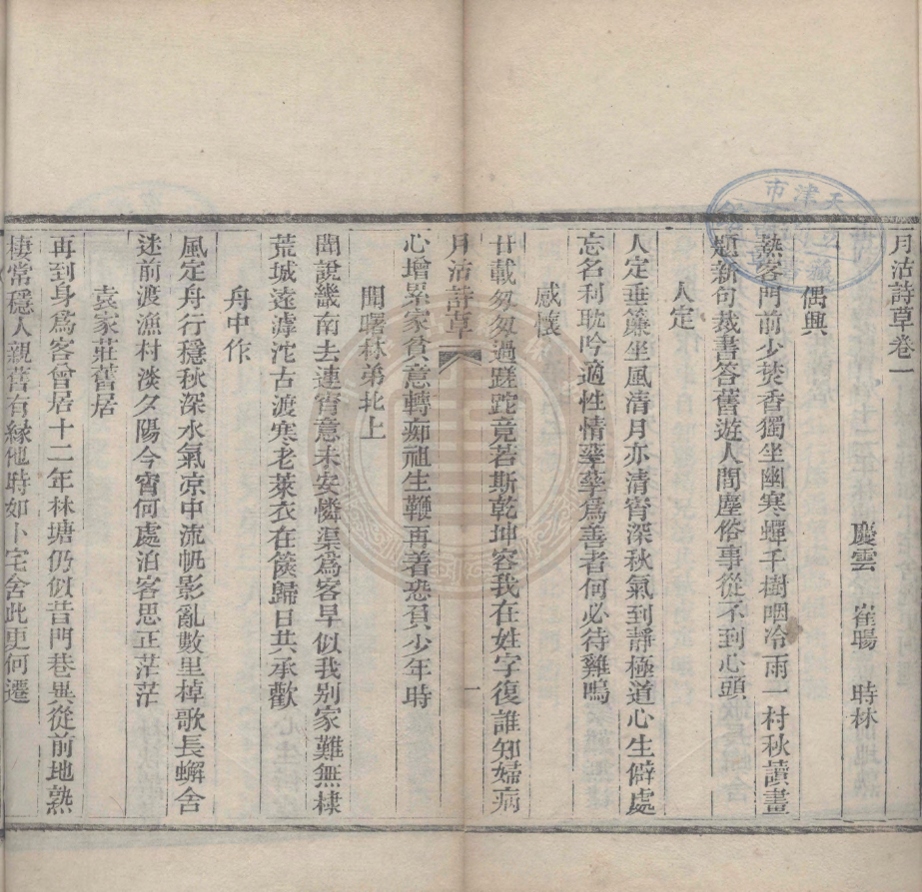 月沽詩草卷一
慶雲 崔暘 時林
偶興
熱客門前少焚香獨坐幽寒蟬千樹咽冷雨一村秋讀畫
題新句裁書答舊遊人間塵俗事從不到心頭
人定
人定垂簾坐風清月亦清宵深秋氣到靜極道心生僻處
忘名利耽吟適性情孳孳爲善者何必待雞鳴
感懷
廿載匆匆過蹉跎竟若斯乾坤容我在姓字復誰知婦病
月沽詩草
一
心增累家貧意轉痴祖生鞭再着恐負少年時
聞曙林弟北上
聞說畿南去連宵意未安憐渠爲客早似我別家難無棣
荒城遠滹沱古渡寒老萊衣在篋歸日共承歡
舟中作
風定舟行穩秋深水氣凉中流帆影亂數里棹歌長蠏舍
迷前渡漁村淡夕陽今宵何處泊客思正茫茫
袁家莊舊居
再到身爲客曾居十二年林塘仍似昔門巷異從前地熟
棲常穩人親舊有緣他時如卜宅舍此更何遷
天津市